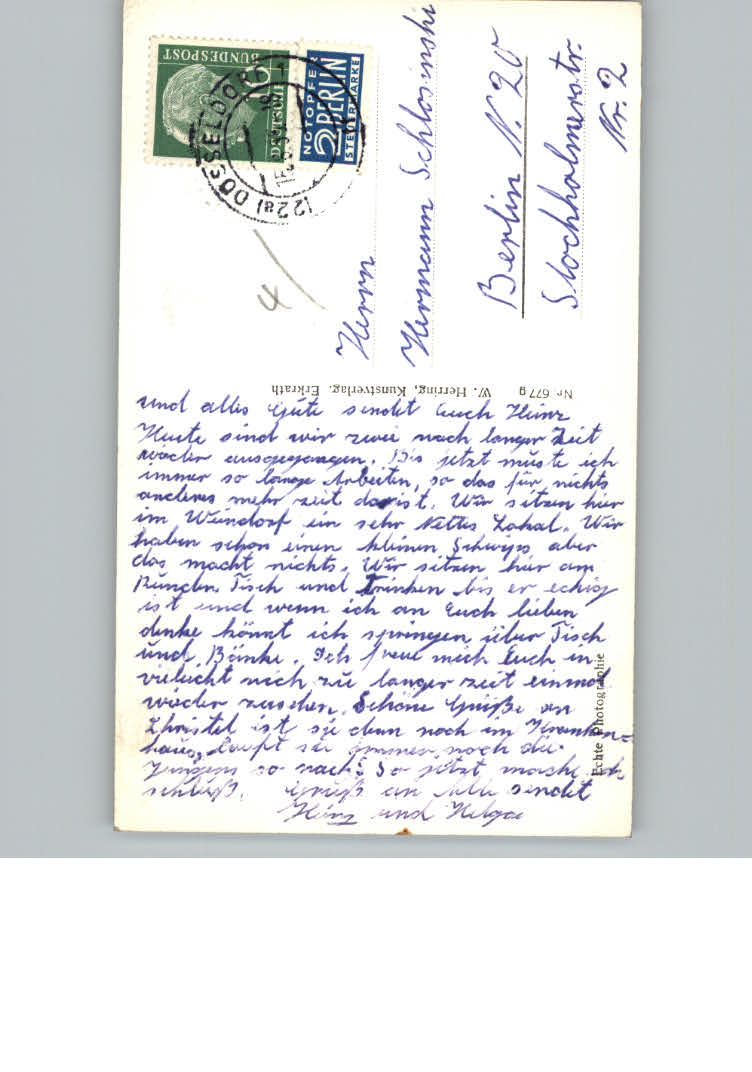 und alles Gute sendet Euch Heinz
Heute sind wir zwei nach langer Zeit
wieder ausgegangen. Bis jetzt muste ich
immer so lange Arbeiten, so das für nichts
anderes mehr zeit da ist. Wir sitzen hier
im Weindorf ein sehr Nettes Lokal. Wir
haben schon einen kleinen Schwips, aber
das macht nichts. Wir sitzen hier am
Runden Tisch und trinken bis er eckig
ist und wenn ich an Euch lieben
denke könnt ich springen über Tisch
und Bänke. Ich freue mich Euch in
nich zu langer zeit einmal
wieder zusehen. Schöne Grüße an
Christel ist sie den noch im Kranken=
haus, lauft sie immer noch die
Jungens so nach? So jetzt mache ich
schluß. Gruß an Alle sendet
Heinz und Helga
Herrn
Hermann Schlosinski
Berlin N. 20
Stockholmerstr.
Nr. 2
4
DEUTSCHE
BUNDESPOST
10
NOTOPFER
2 BERLIN
STEUERMARKE
(22a) DÜSSELDORF 1
Nr. 677 g
W. Herring, Kunstverlag, Erkrath
Echte Photographie